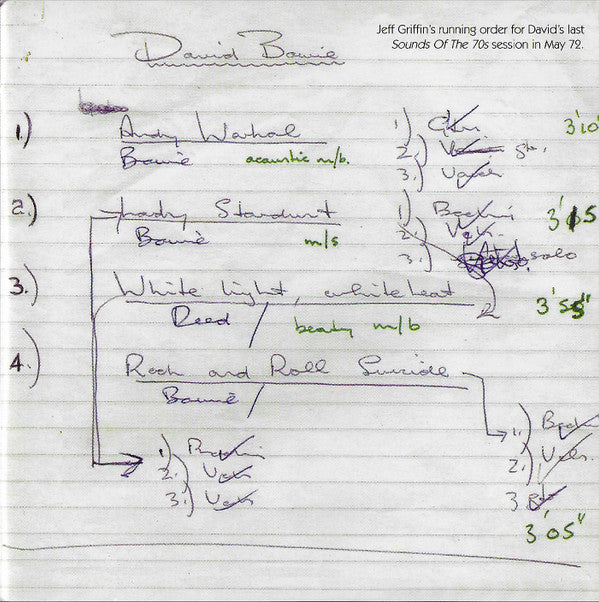 Jeff Griffin's running order for David's last
Sounds Of The 70s session in May 72.
David Bowie
1.) Andy Warhol 1.) Gtr. 3'10"
Bowie acoustic m/b. 2.) gtr.
3.) Vocals
2.) Lady Stardust 1.) Backing 3'15
Bowie m/s 2.) Vox.
3.) solo
3.) White light, white heat 2 3'55"
Reed / beaty m/b
4.) Rock and Roll Suicide
Bowie /
1.) Backing 1.) Back
2.) Vox 2.) Vocals.
3.) Vox 3
3'05"